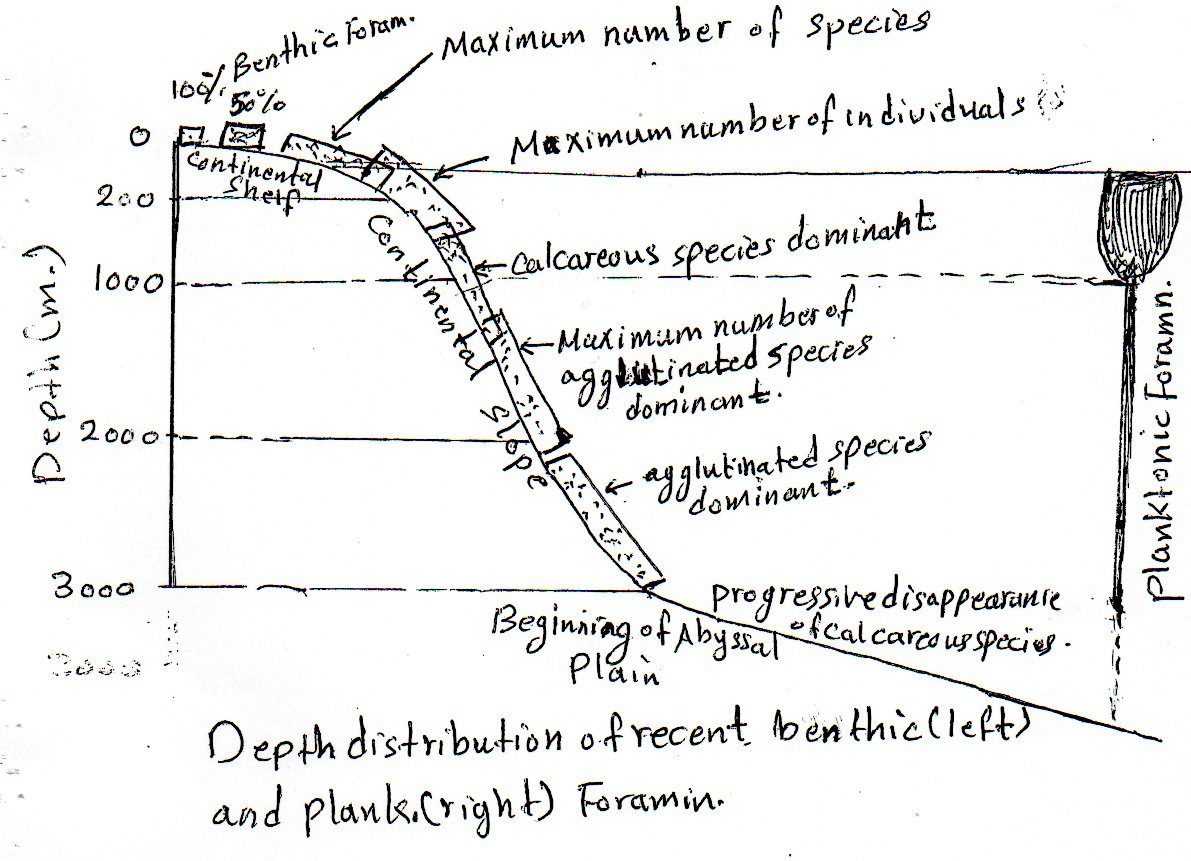 100% Benthic Foram.
50%
Maximum number of species
Maximum number of individuals
0
Continental
Shelf
200
Continental Slope
Calcareous species dominant
1000
Maximum number of
agglutinated species
dominant.
2000
agglutinated species
dominant.
3000
Depth (m.)
Planktonic Foramn.
Beginning of Abyssal
Plain
Progressive disappearance
of calcareous species.
3000
Depth distribution of recent benthic (left)
and plank. (right) Foramin.